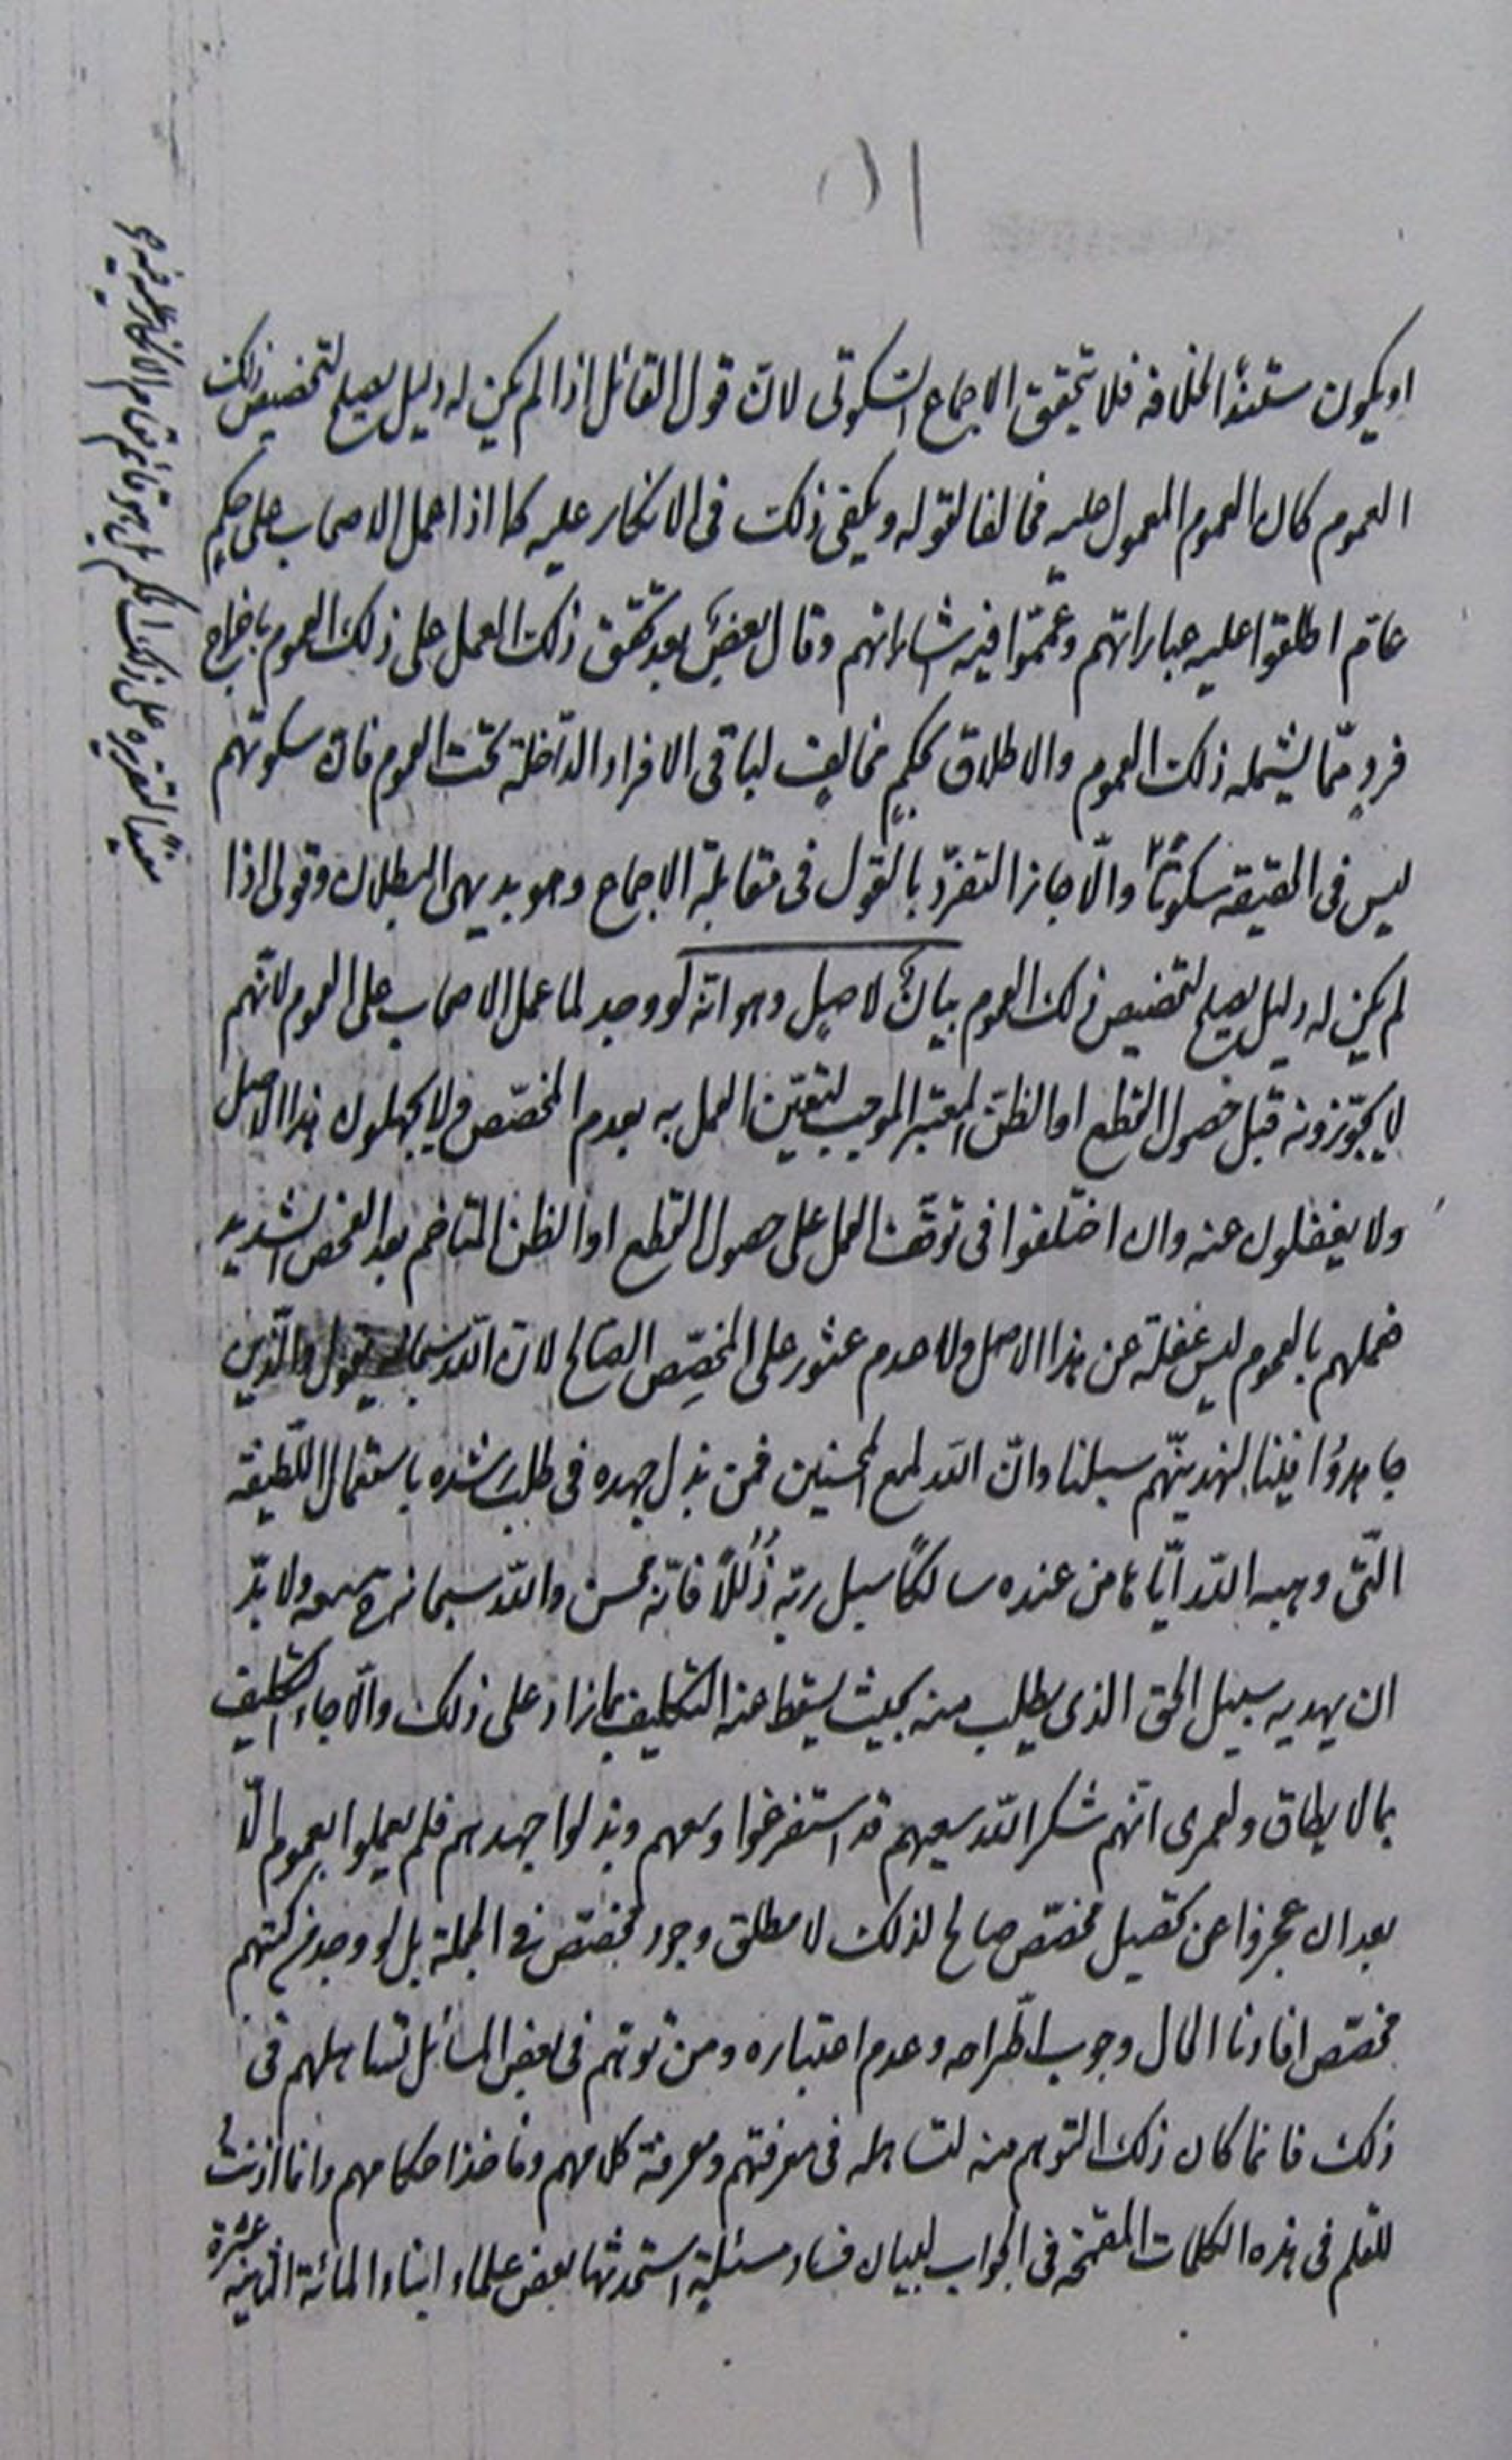 او يكون مستندًا لخلافه فلا يتحقق الاجماع السكوتى لان قول القائل اذا لم يكن له دليل يصلح لتخصيص ذلك
العموم كان العموم المعمول عليه مخالفا لقوله ويكفى ذلك فى الانكار عليه كما اذا عمل الاصحاب على حكم
عام اطلقوا عليه عباراتهم وعمّموا فيه اشاراتهم وقال بعضٌ بعد تحقق ذلك العمل على ذلك العموم باخراج
فردٍ ممّا يشمله ذلك العموم والاطلاق بحكمٍ مخالفٍ لباقى الافراد الداخلة تحت العموم فان سكوتهم
ليس فى الحقيقة سكوتًا والّا جاز التفرّد بالقول فى مقابلة الاجماع وهو بديهى البطلان وقولى اذا
لم يكن له دليل يصلح لتخصيص ذلك العموم بيانٌ لاصلٍ وهو انّه لو وجد لما عمل الاصحاب على العموم لانّهم
لا يجوّزونه قبل حصول القطع او الظنّ المعتبر الموجب لتعيّن العمل به بعدم المخصّص ولا يجهلون هذا الاصل
ولا يغفلون عنه وان اختلفوا فى توقف العمل على حصول القطع او الظن المتاخم بعد الفحص الشديد
فعملهم بالعموم ليس غفلة عن هذا الاصل ولا عدم عثور على المخصِّص الصالح لان الله سبحانه يقول والّذين
جاهدُوا فينا لنهدينّهم سبلنا وانّ الله لمع المحسنين فمن بذل جهده فى طلب رشده باستعمال اللّطيفة
الّتى وهبه الله ايّاها من عنده سالكًا سبل ربّه ذُلُلًا فانّه محسن والله سبحانه معه ولا بدّ
ان يهديه سبيل الحق الذى يطلب منه بحيث يسقط عنه التكليف بما زاد على ذلك والّا جاء التكليف
بما لا يطاق ولعمرى انّهم شكر الله سعيهم قد استفرغوا وسعهم وبذلوا جهدهم فلم يعملوا بعموم الّا
بعد ان عجزوا عن تحصيل مخصّص صالح لذلك لا مطلق وجود مخصّص فى الجملة بل لو وجد فى كتبهم
مخصّص افادنا الحال وجوب اطّراحه وعدم اعتباره ومن توهّم فى بعض المسائل تساهلهم فى
ذلك فانما كان ذلك التوهم منه لتساهله فى معرفتهم ومعرفة كلامهم وماخذ احكامهم وانما اذنتُ
للقلم فى هذه الكلمات المقحمة فى الجواب لبيان فساد مسئلةٍ استحدثها بعض علماء ابناء المائة الثانية عشرة